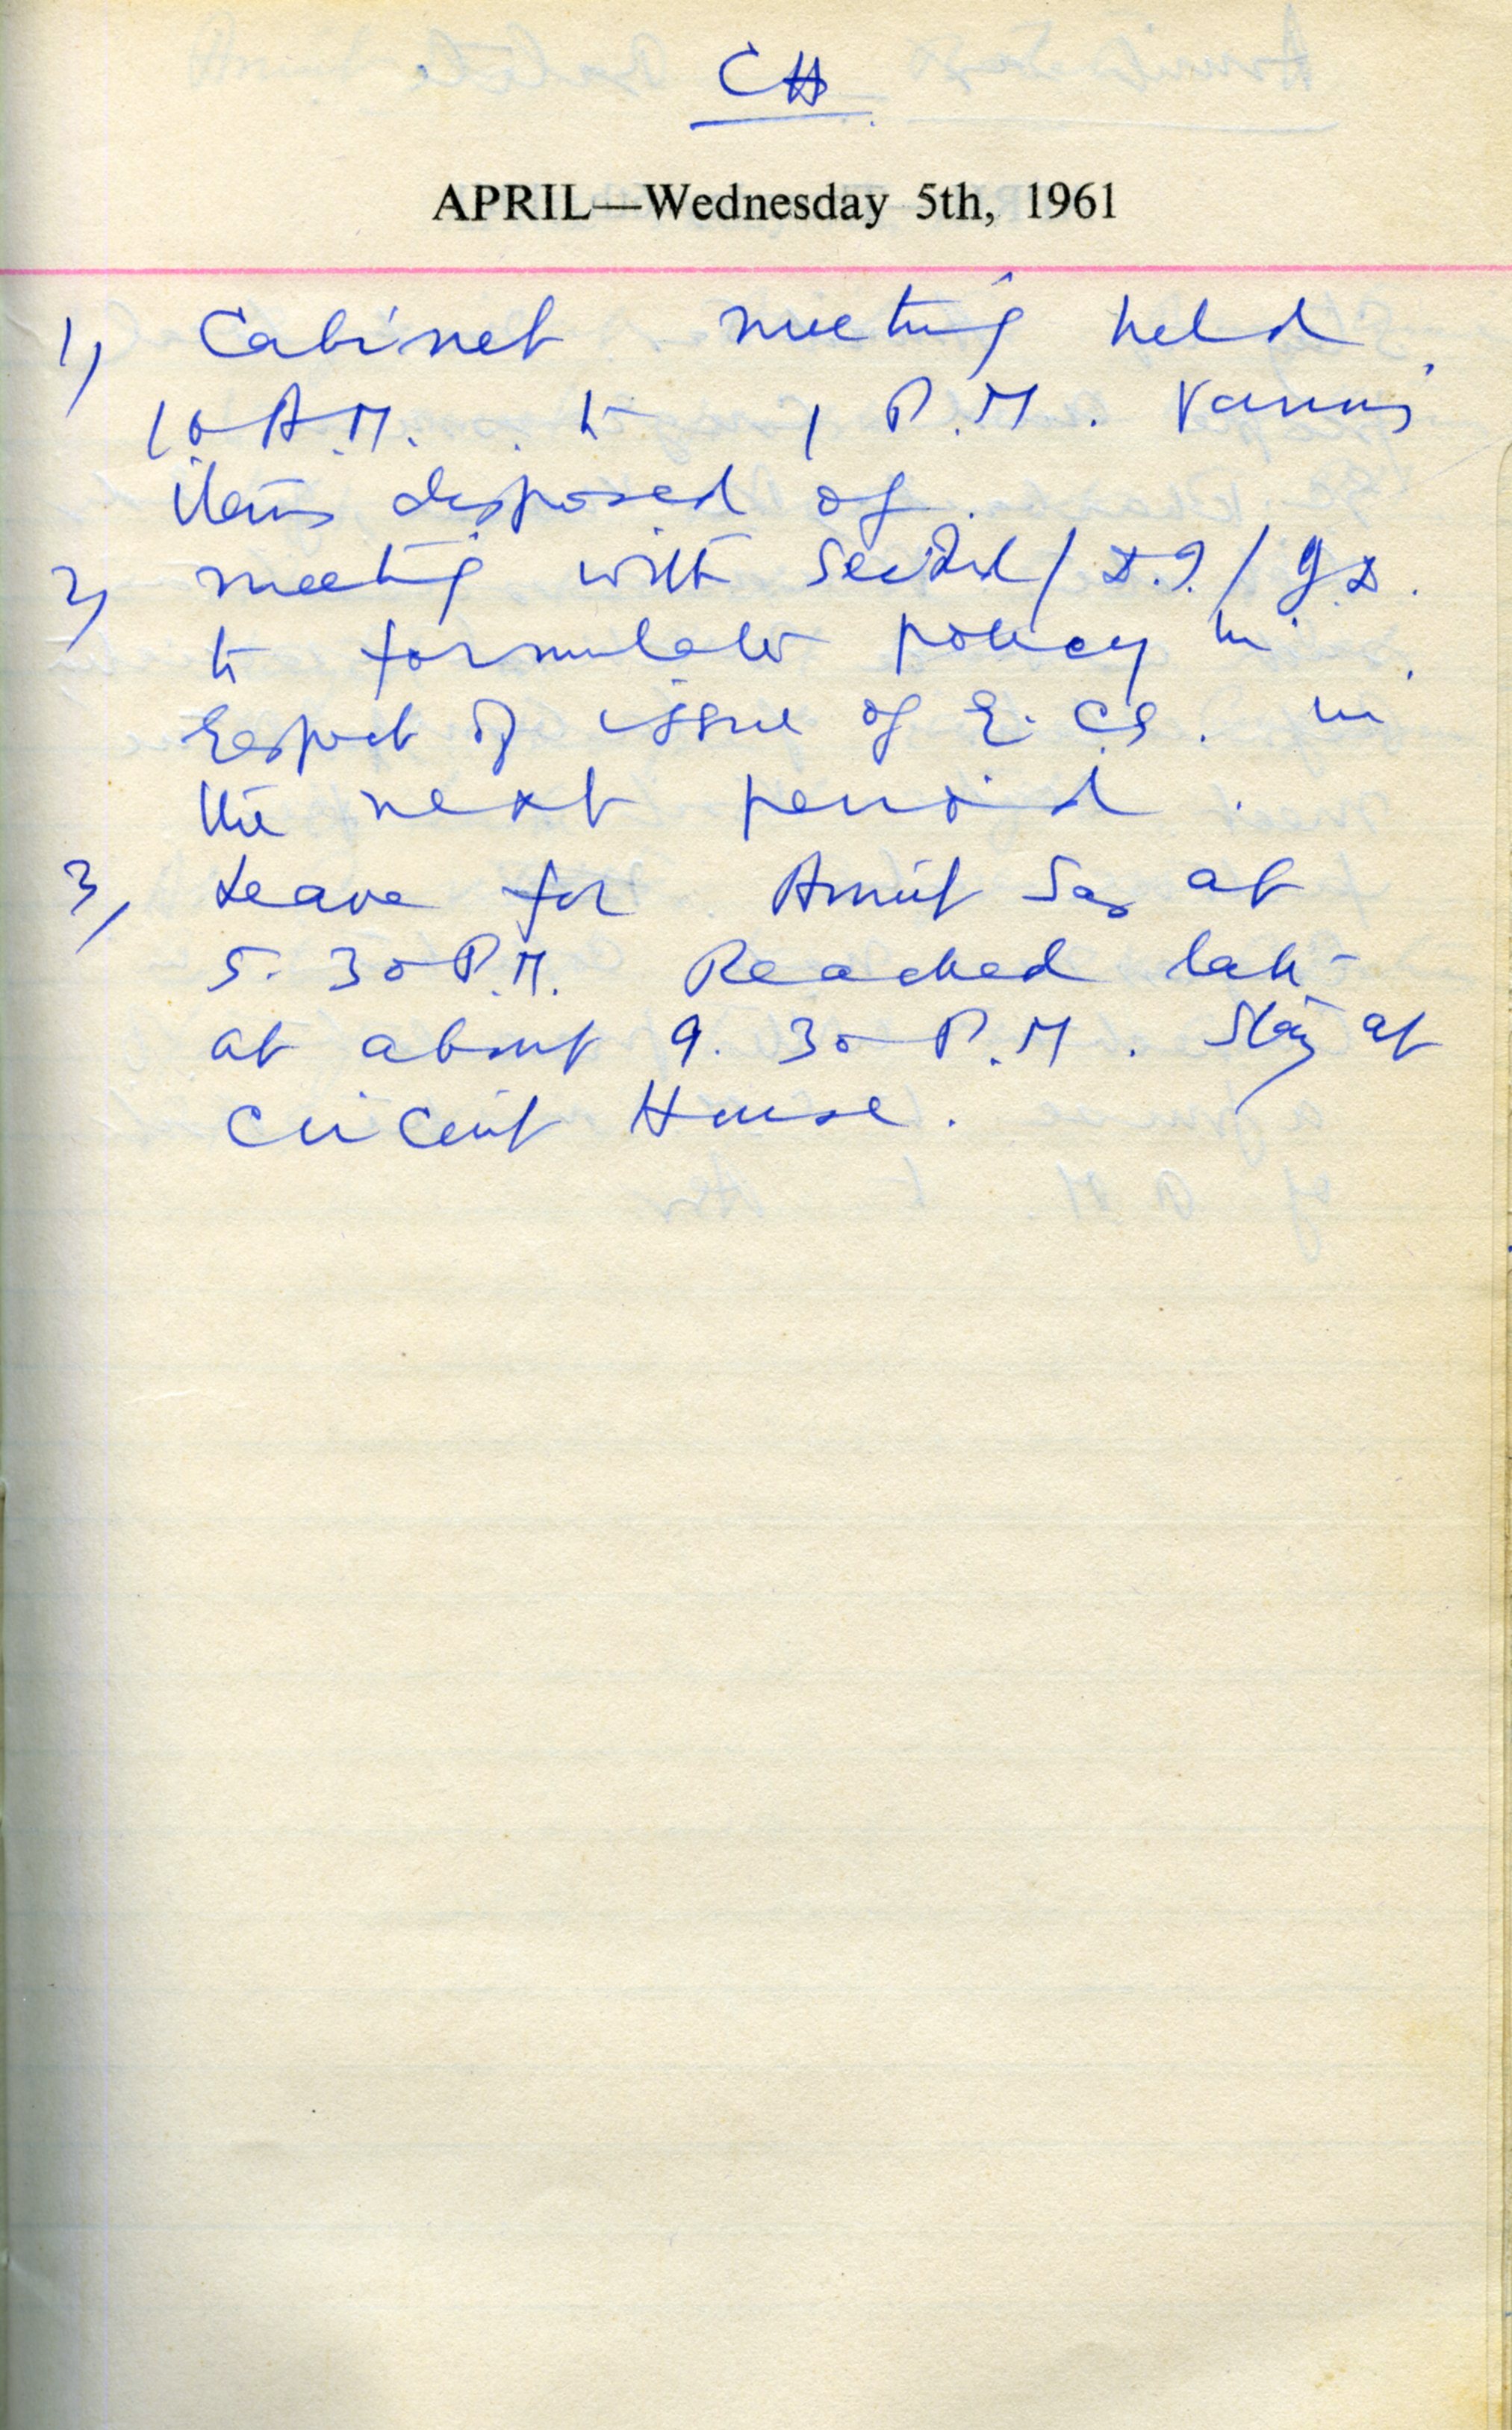 CH
APRIL—Wednesday 5th, 1961
1) Cabinet meeting held
10 A.M. to 1 P.M. Various
items disposed of.
2) meeting with / D.I. / J.D.
to formulate policy in
respect of issue of E.Cs. in
the next period.
3) Leave for Amrit Sar at
5.30 P.M. Reached late
at about 9.30 P.M. Stay at
Circuit House.